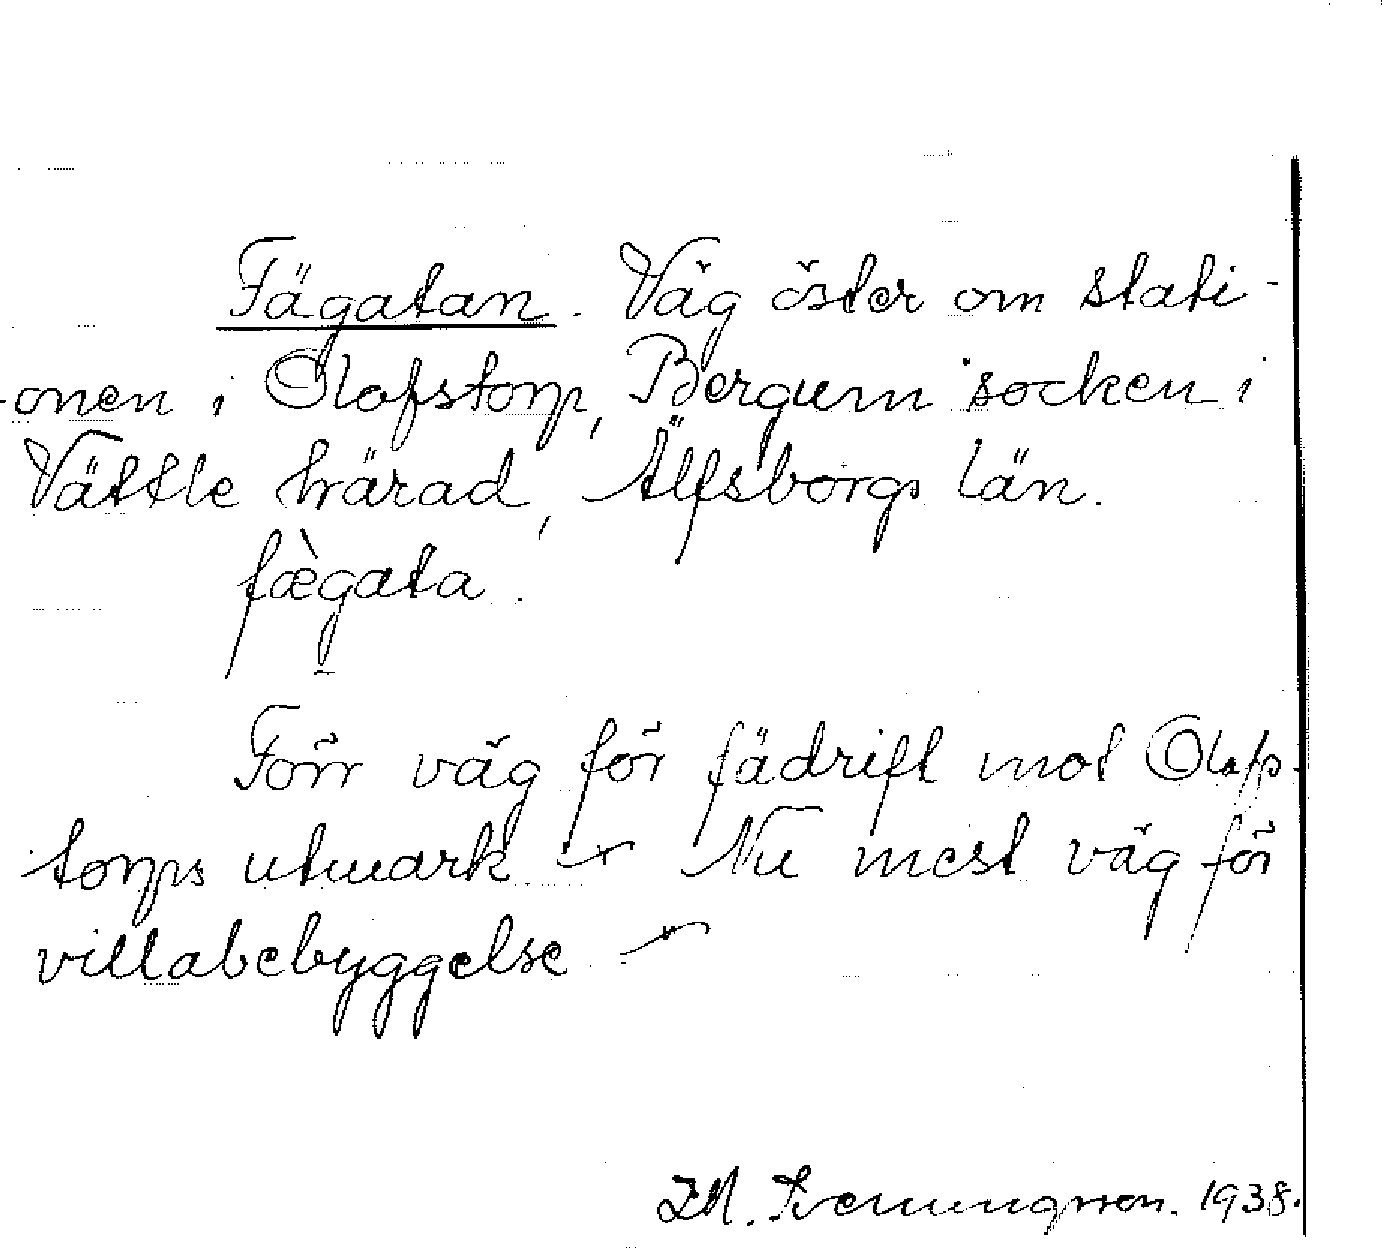 Fägatan. Väg öster om stati-
onen i Olofstorp, Bergum socken i
Vättle härad, Älfsborgs län.
fæ̀gata.
Förr väg för fädrift mot Olofs-
torps utmark. Nu mest väg för
villabebyggelse
Svenungsson. 1938.